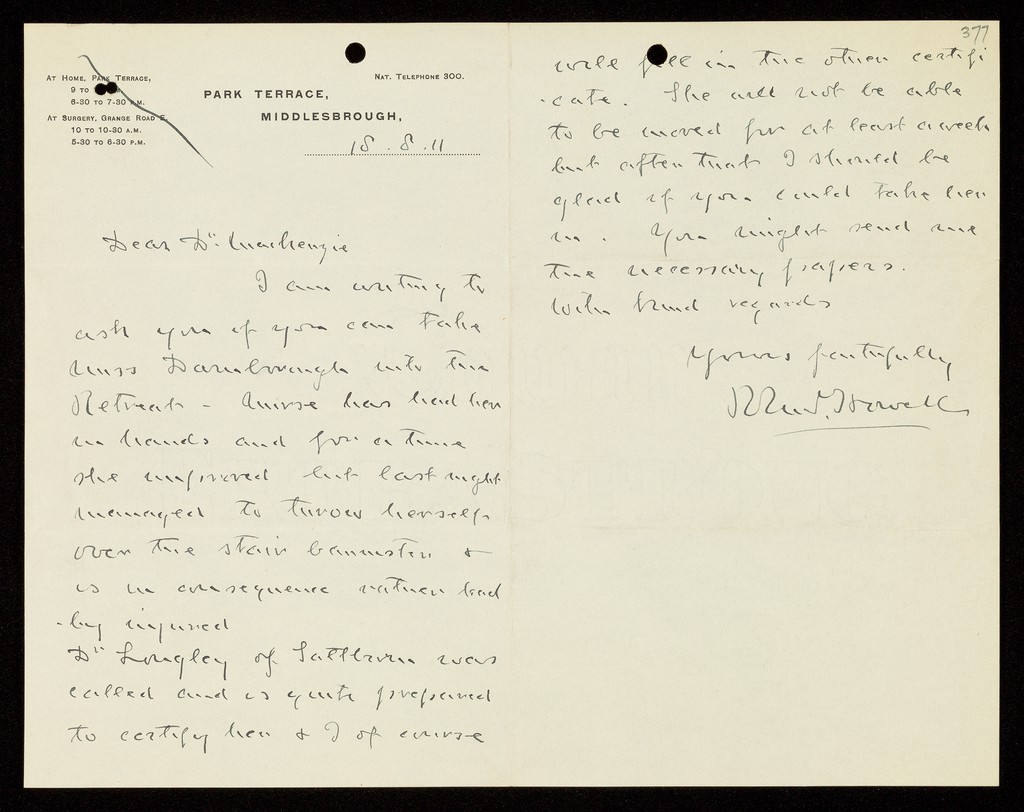 377
At Home, Park Terrace,
9 to
6-30 to 7-30 P.M.
At Surgery, Grange Road E.
10 to 10-30 A.M.
5-30 to 6-30 P.M.
Nat. Telephone 300.
PARK TERRACE,
MIDDLESBROUGH,
18.8.11
Dear Dr. Mackenzie
I am writing to
ask you if you can take
Miss Darnbrough into the
Retreat - Nurse has had her
in hands and for a time
she improved but last night
managed to throw herself
over the stair bannister &
is in consequence rather bad
-ly injured
Dr Longley of was
called and is quite prepared
to certify her & I of course
will fill in the other certifi
-cate. She will not be able
to be moved for at least a week
but after that I should be
glad if you could take her
in. You might send me
the necessary papers.
With kind regards
Yours faithfully
Howell